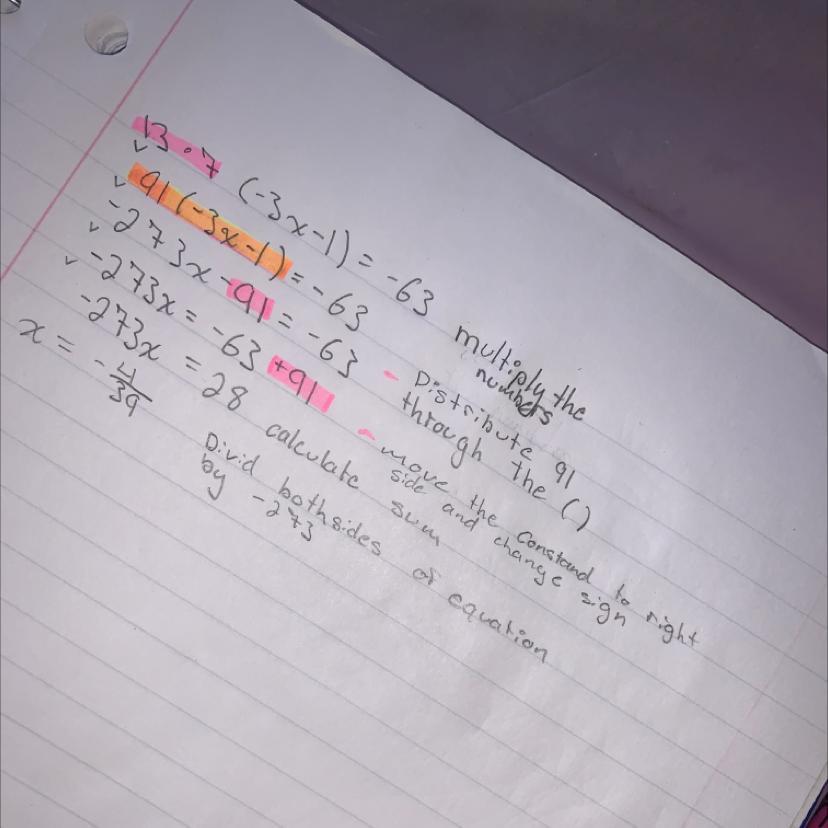 13 • 7 (-3x-1) = -63 multiply the
numbers
91(-3x-1) = -63
-273x -91 = -63 - Distribute 91
through the ( )
-273x = -63 +91 - move the constand to right
side and change sign
-273x = 28 calculate sum
x = -4/39 Divid bothsides of equation
by -273